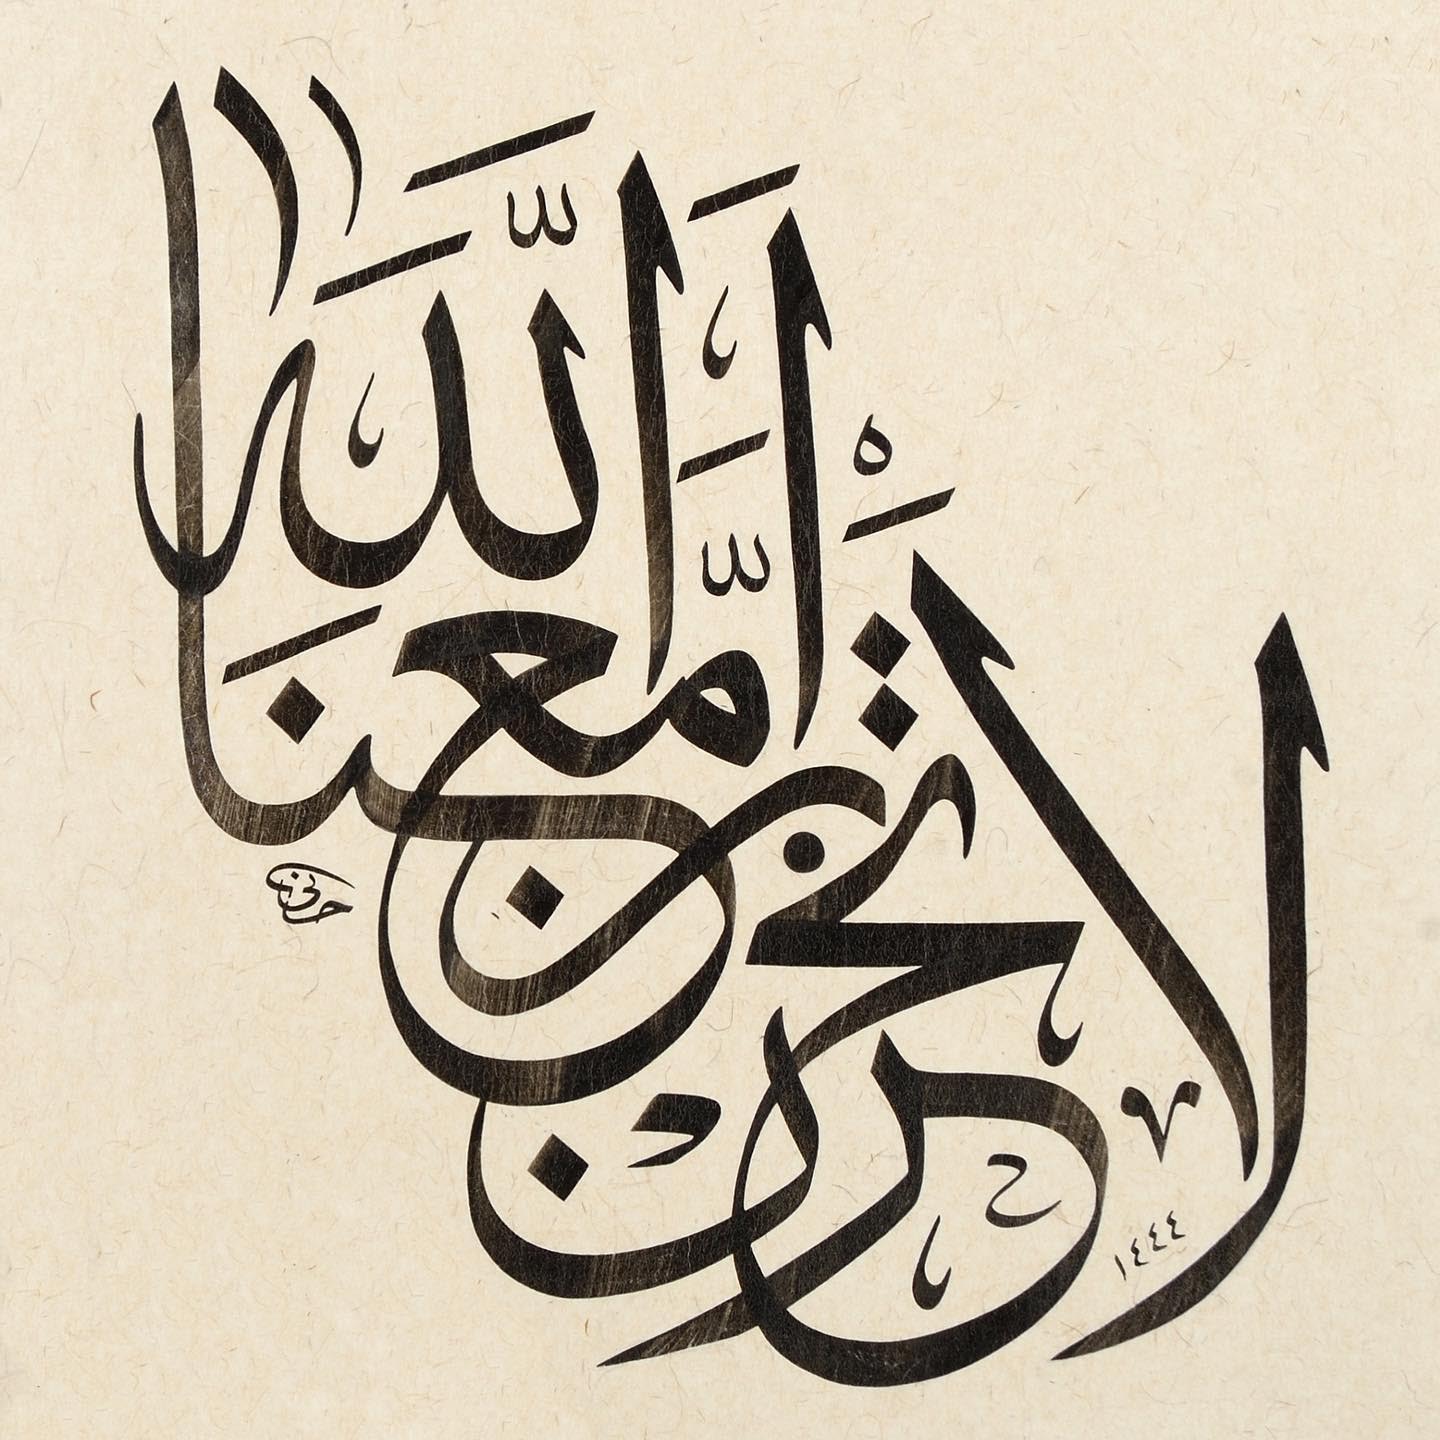 لَا تَحْزَنْ إِنَّ اللَّهَ مَعَنَا
١٤٤٤